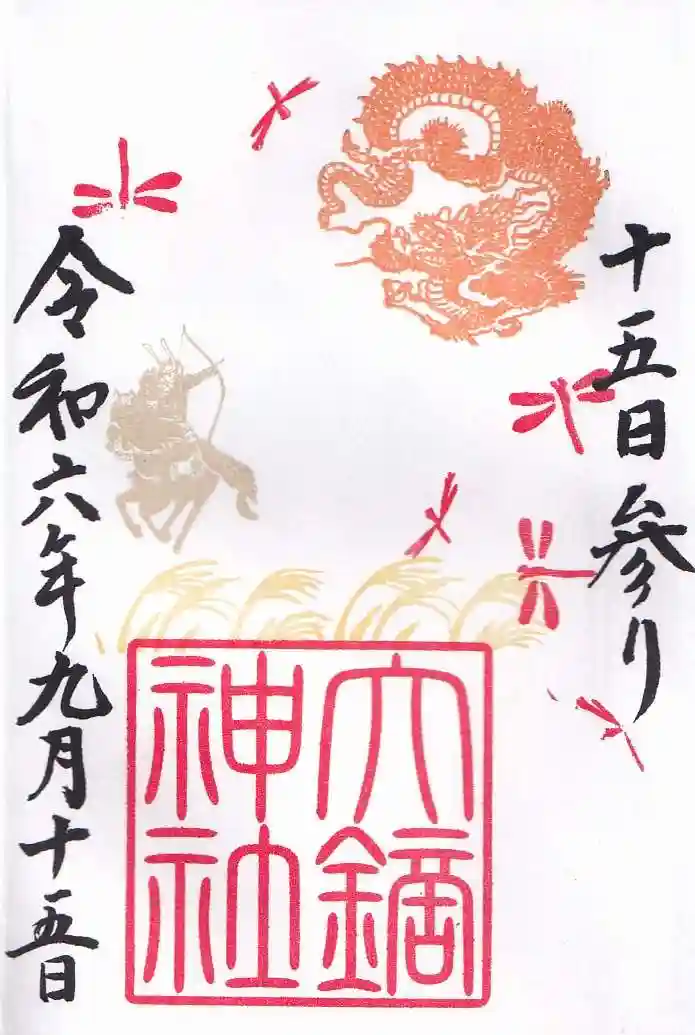 十五日参り
大鏑
神社
令和六年九月十五日